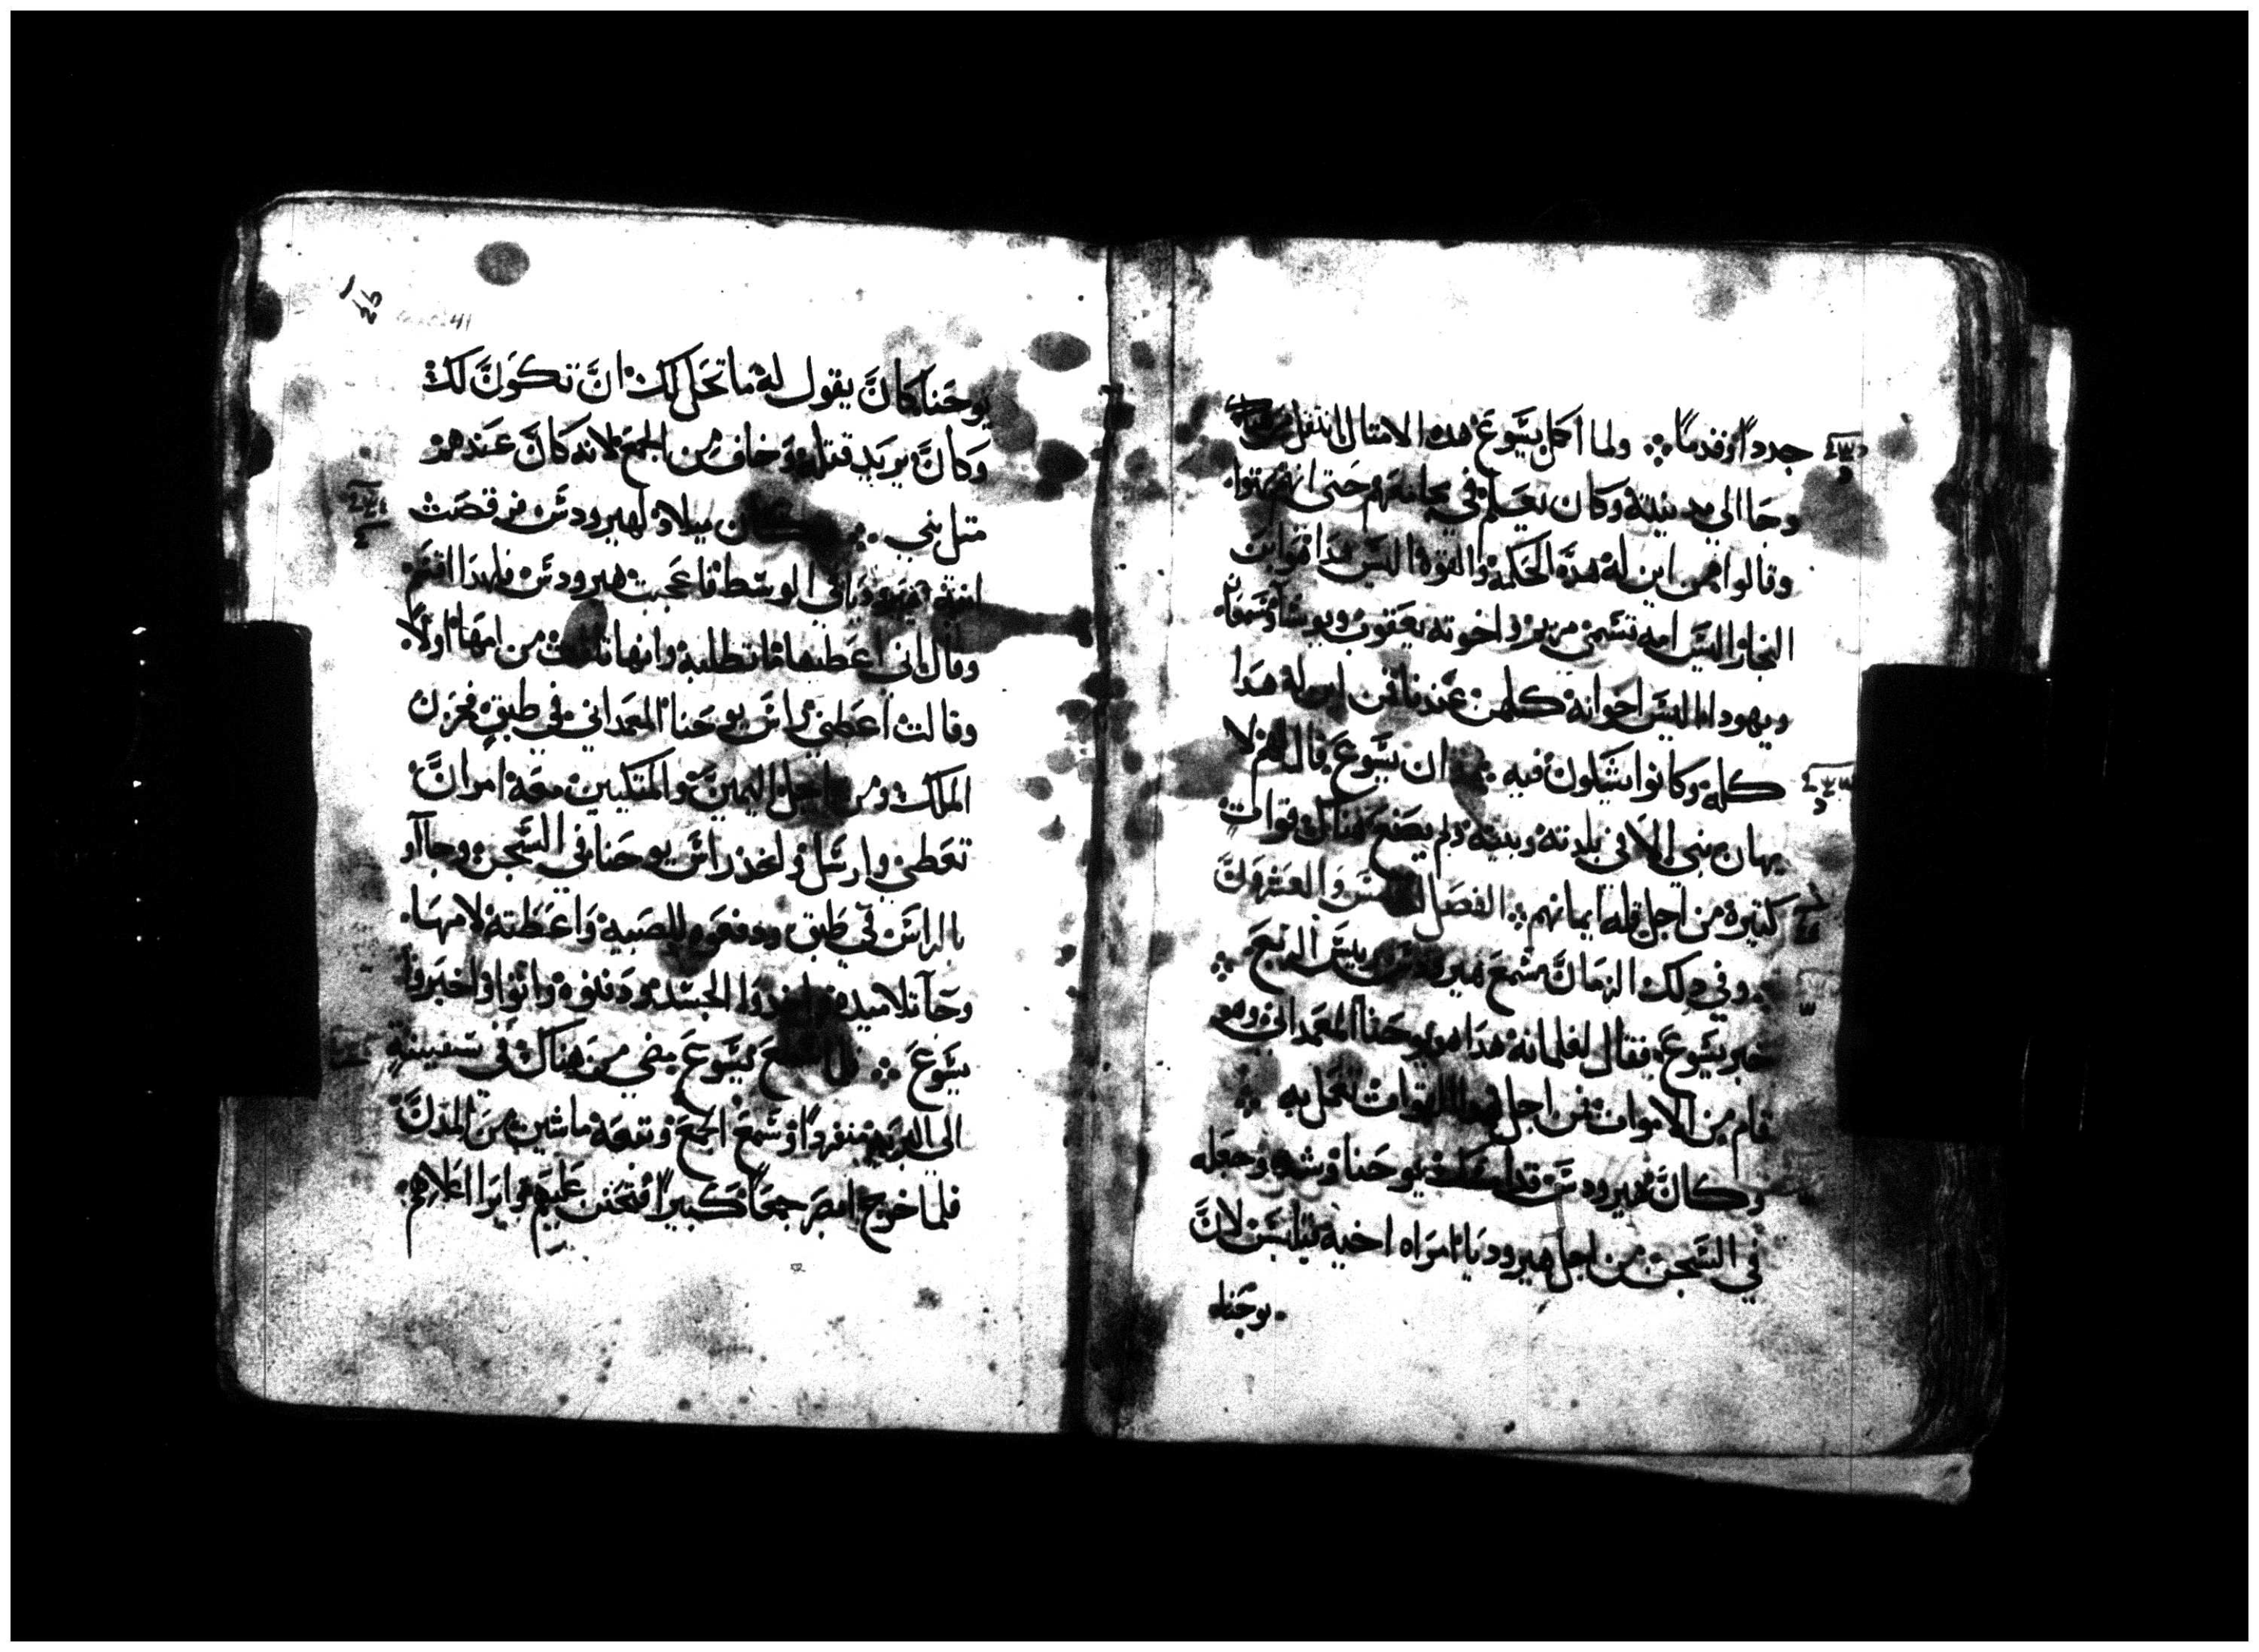 جدداً وقدماً ولما أكل يسوع هده الامتال انتقل من
وجا الي مدينته وكان يعلم في مجامعهم حتى انهم بهتوا
وقالوا من اين له هده الحكمة والقوة اليس هدا هو ابن
النجار اليس امه تسمى مريم واخوته يعقوب ويوسا وسمعان
ويهودا اليس اخواته كلهن عندنا فمن اين له هدا
كله وكانوا يشكون فيه ان يسوع قال لهم لا
يهان نبي الا في بلدته وبيته ولم يصنع هناك قوات
كتيرة من اجل قله ايمانهم الفصل والعشرون
وفي دلك الزمان سمع هيرودس رييس الربع
خبر يسوع فقال لغلمانه هدا هو يوحنا المعمداني وهو
قام من الاموات فمن اجل هدا القوات تعمل به
وكان هيرودس قد يوحنا وشده وجعله
في السجن من اجل هيروديا امراه اخيه فيلبس لان
يوحنا
يوحنا كان يقول له ما تحل لك ان تكون لك
وكان يريد قتله وخاف من الجمع لانه كان عندهم
متل نبي كان ميلاد لهيرودس فرقصت
ابنة هيروديا في الوسط فاعجبت هيرودس فلهدا اقسم
وقال اني اعطيها ما تطلبه وانها من امها اولا
وقالت أعطني راس يوحنا المعمداني في طبق فحزن
الملك ومن اجل اليمين والمتكيين معه امر ان
تعطى وارسل واخذ راس يوحنا في السجن وجاآو
بالراس في طبق ودفعوه للصبيه واعطته لامها
وجآ تلاميده واخدوا الجسد ودفنوه واتوا واخبروا
يسوع فلما سمع يسوع مضي من هناك في سفينة
الي البريه منفردا وسمع الجمع وتبعه ماشين من المدن
فلما خرج ابصر جمعا كبيرا فتحنن عليهم وابرا اعلاهم